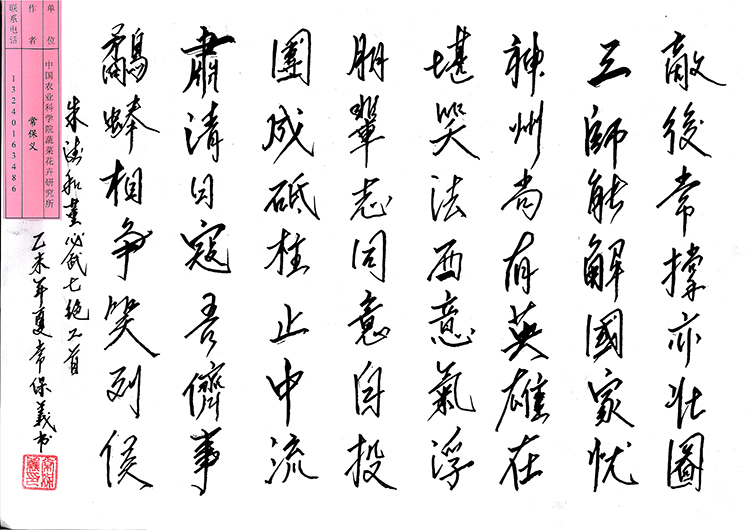 敵後常撑亦壯圖
三師能解國家忧
神州尚有英雄在
堪笑法西意氣浮
朋輩志同意自投
團成砥柱止中流
肅清日寇吾儕事
鷸蚌相争笑列侯
朱德和董必武七绝二首
乙未年夏常保義书
单位 中国农业科学院蔬菜花卉研究所
作者 常保义
联系电话 13240163486